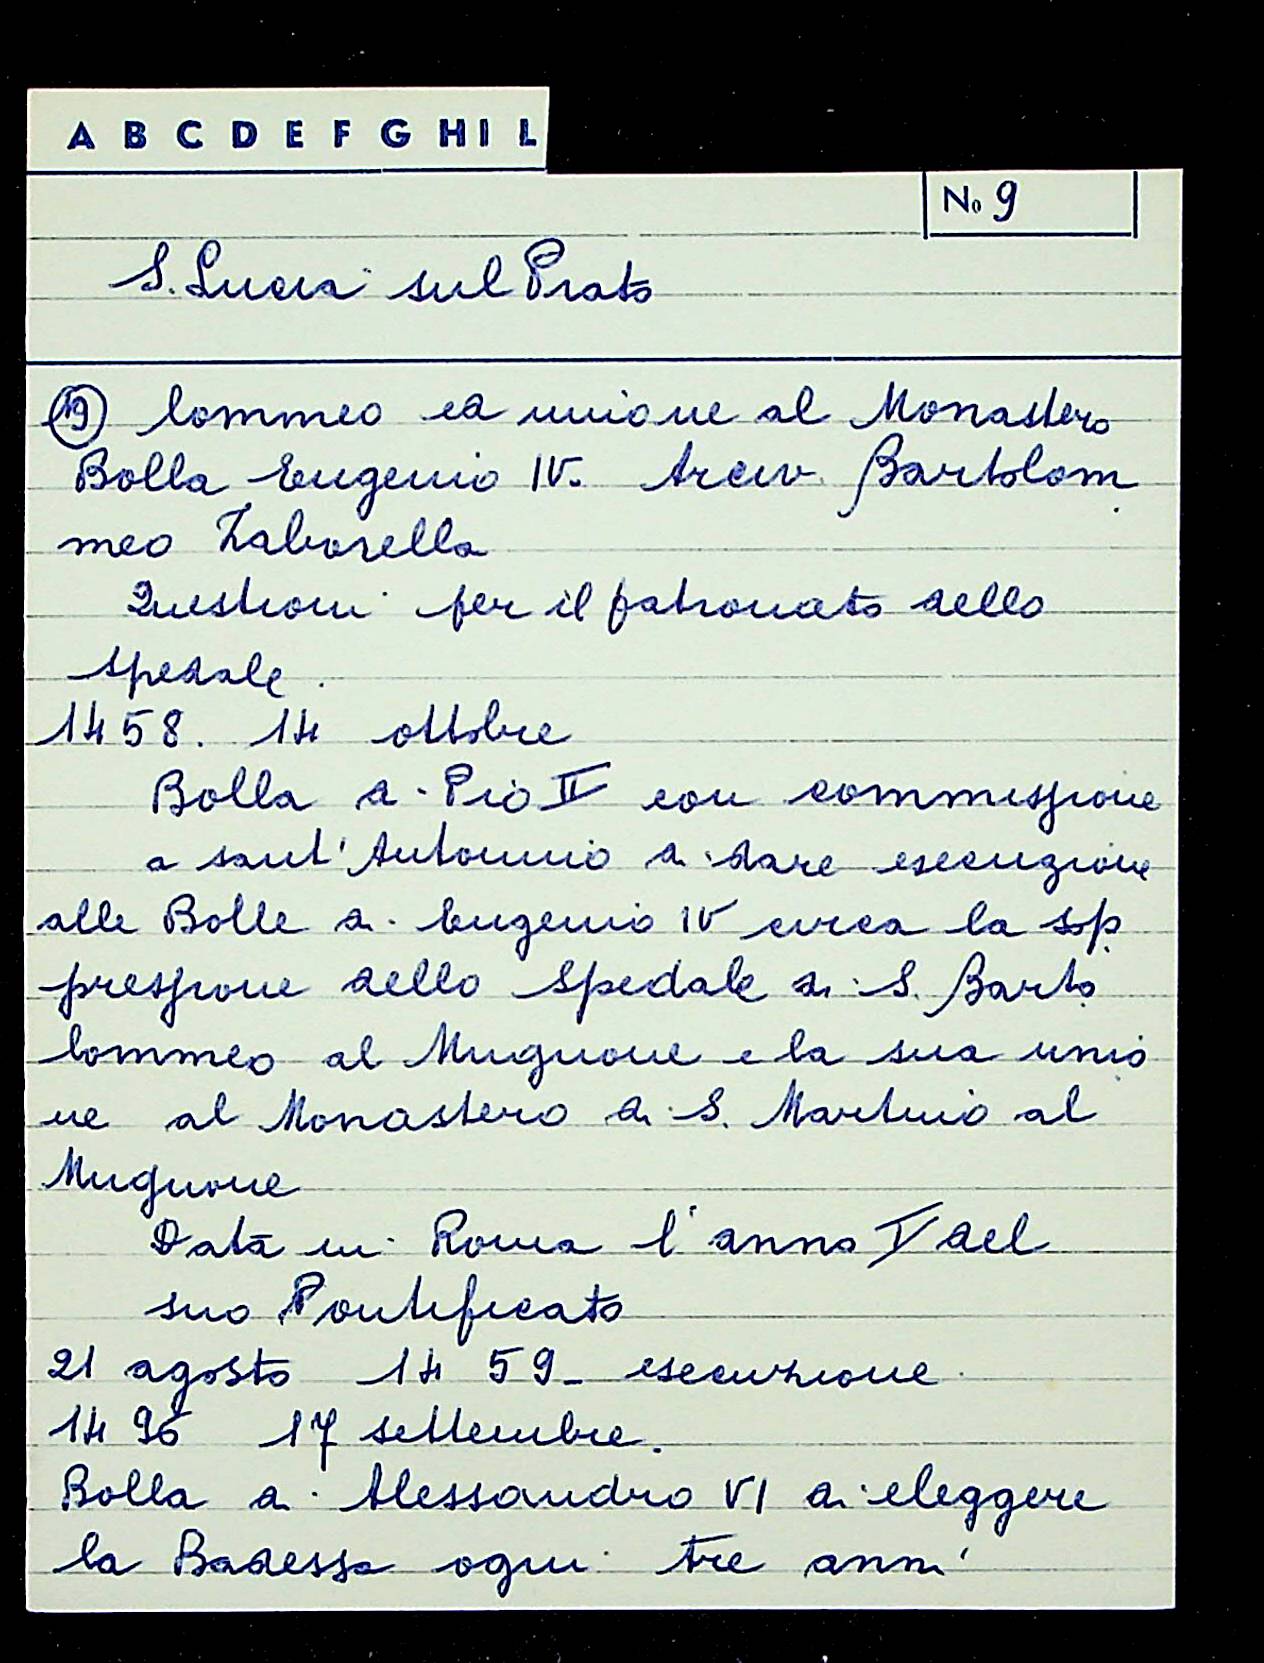 A B C D E F G H I L
No 9
S. Lucia sul Prato
(9) lommeo ed unione al Monastero
Bolla Eugenio IV. Arciv. Bartolom
meo Zabarella
Questioni per il patronato dello
spedale.
1458. 14 ottobre
Bolla di Pio II con commissione
a sant'Antonino di dare esecuzione
alle Bolle di Eugenio IV circa la sop
pressione dello Spedale di S. Barto
lommeo al Mugnone e la sua unio
ne al Monastero di S. Martino al
Mugnone
Data in Roma l'anno V del
suo Pontificato
21 agosto 1459 - esecuzione
1496 17 settembre.
Bolla di Alessandro VI di eleggere
la Badessa ogni tre anni